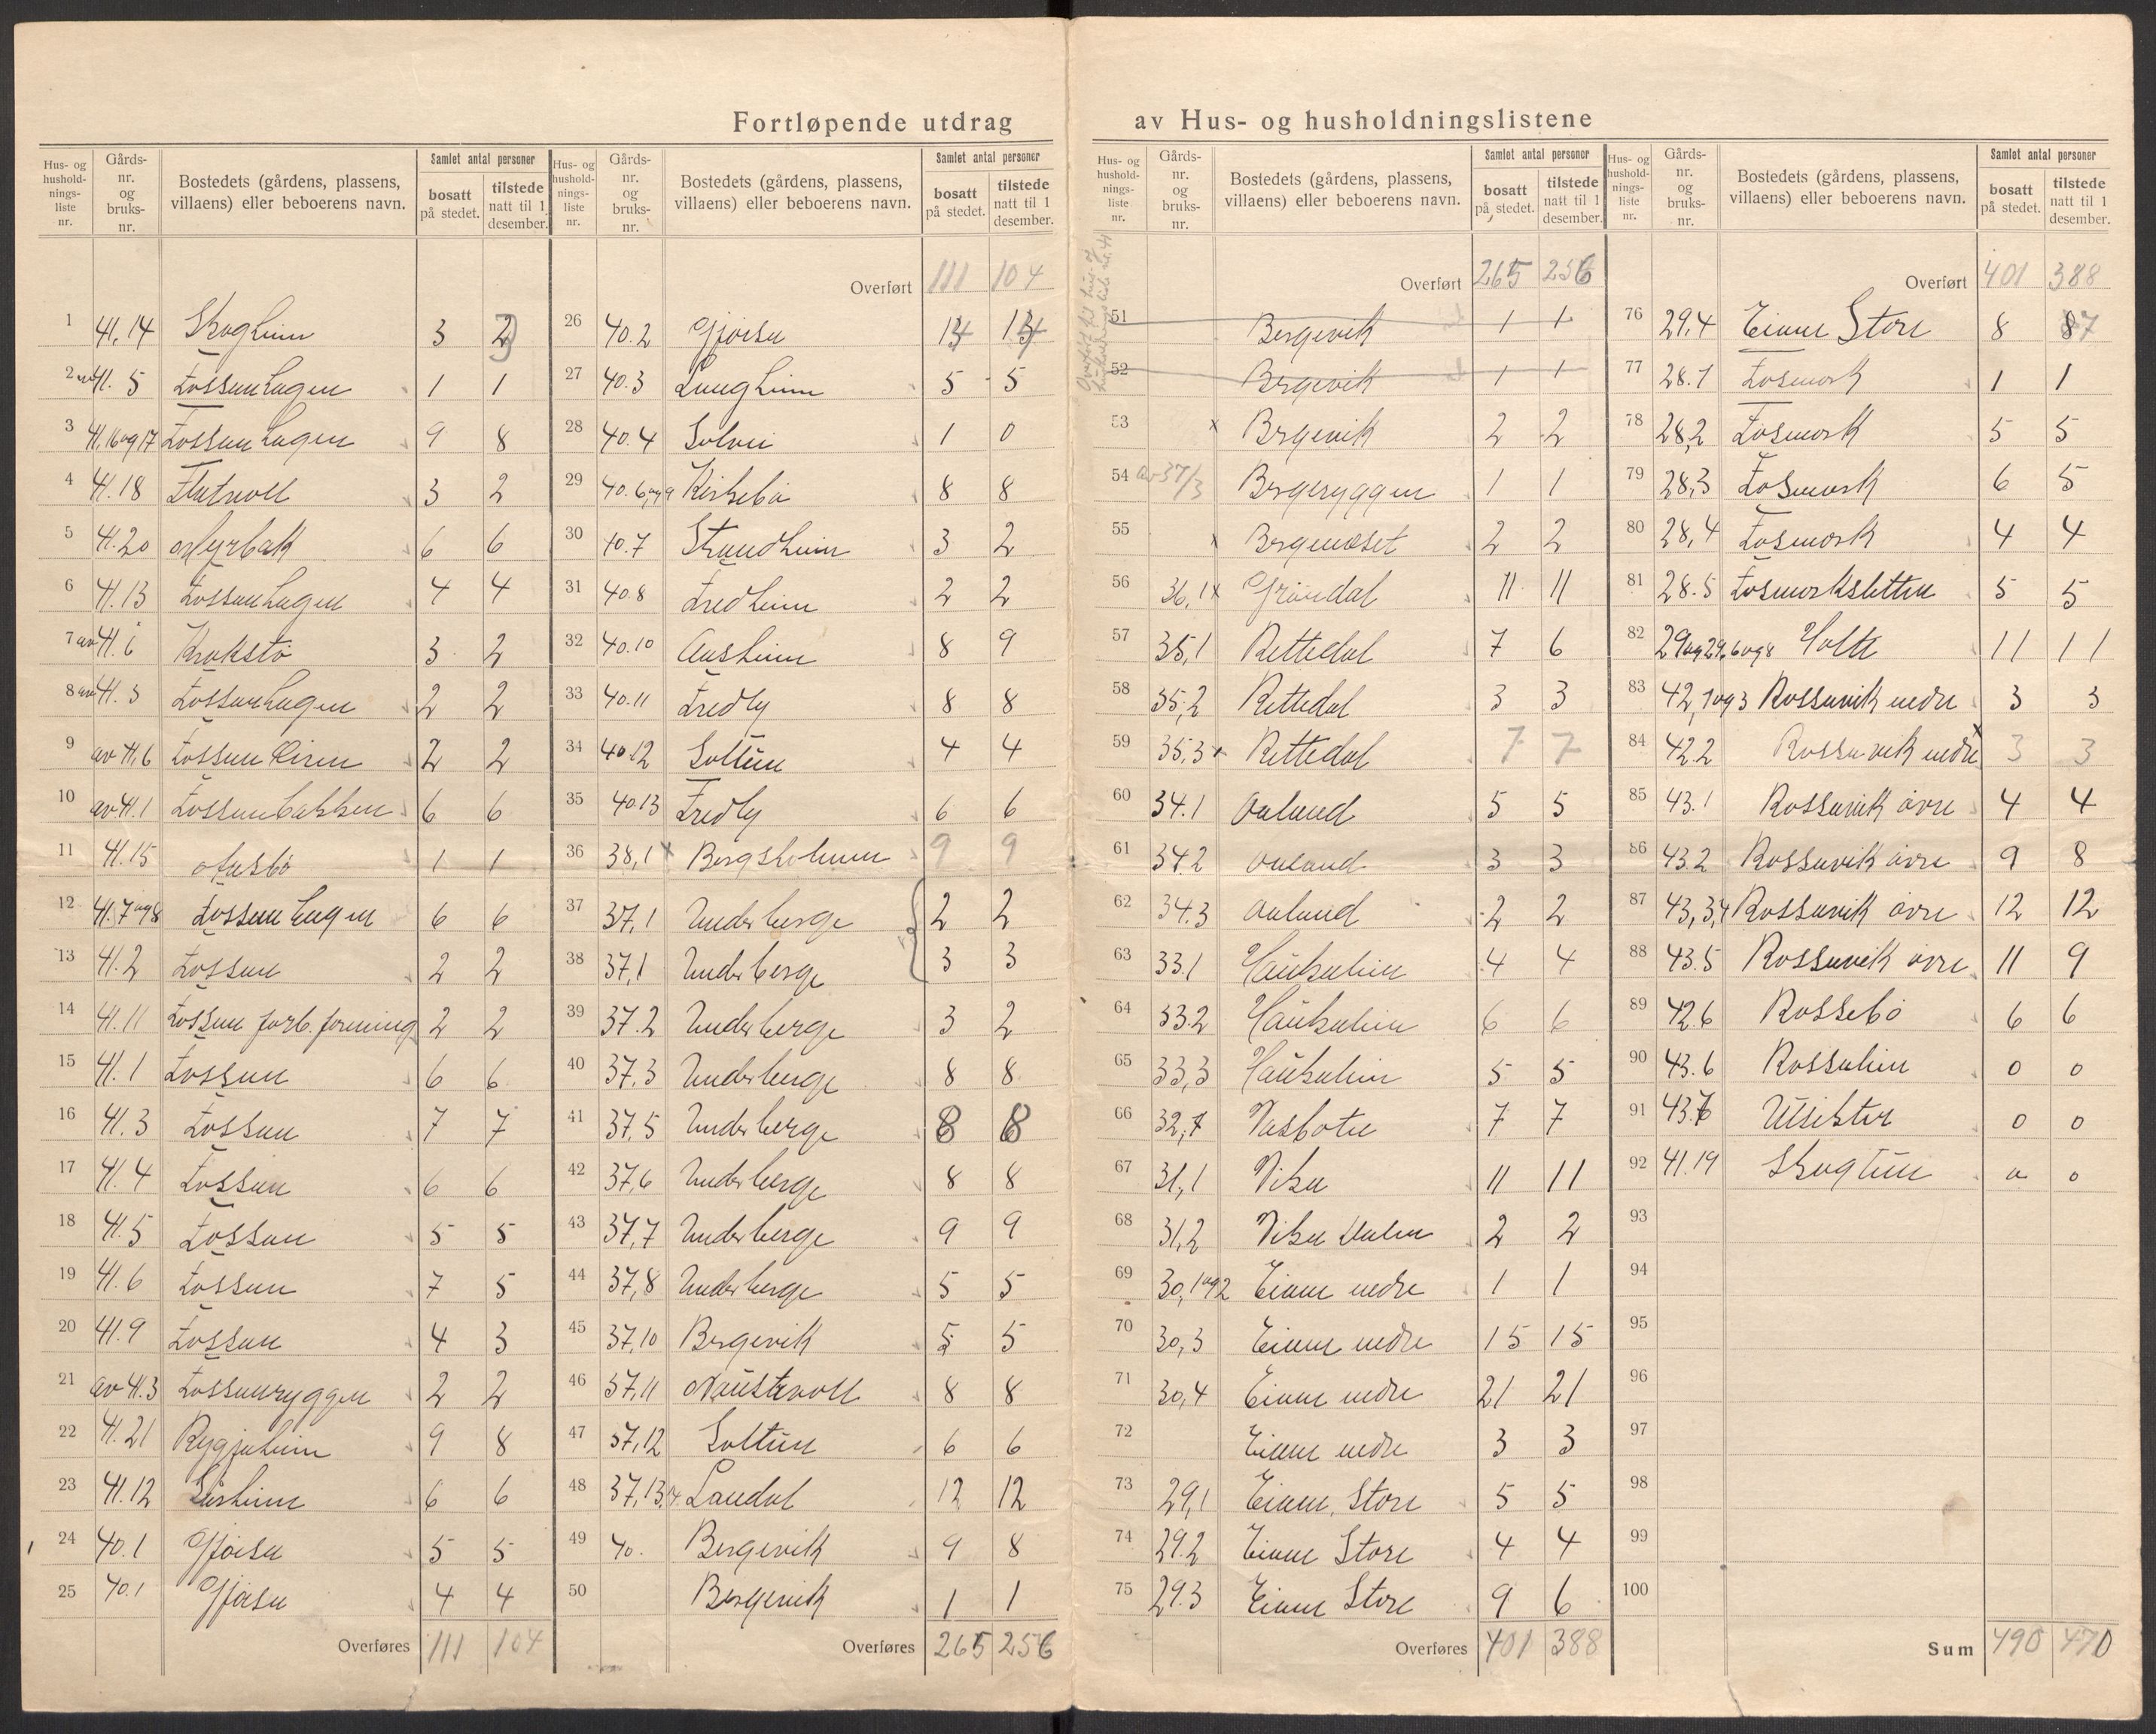 Fortløpende utdrag av Hus- og husholdningslistene
Hus- og husholdnings-liste nr. | Gårds-nr. og bruks-nr. | Bostedets (gårdens, plassens, villaens) eller beboerens navn. | Samlet antal personer | bosatt på stedet. | tilstede natt til 1 desember.
1 41,14 Skogheim 3 3
2 av 41. 5 Fossanhagen 1 1
3 41,16 og 17 Fossanhagen 9 8
4 41.18 Flatvoll 3 2
5 41.20 Myrbak 6 6
6 41.13 Fossanhagen 4 4
7 av 41.6 Krokstø 3 2
8 av 41.3 Fossanhagen 2 2
9 av 41,6 Fossan 2 2
10 av 41.1 Fossanbakken 6 6
11 41.15 1 1
12 41.7 og 8 Fossanhagen 6 6
13 41.2 Fossan 2 2
14 41.11 Fossan forb. forening 2 2
15 41.1 Fossan 6 6
16 41.3 Fossan 7 7
17 41.4 Fossan 6 6
18 41.5 Fossan 5 5
19 41.6 Fossan 7 5
20 41.9 Fossan 4 3
21 av 41.3 Fossanryggen 2 2
22 41.21 Rygjaheim 9 8
23 41.12 Solheim 6 6
24 40.1 Gjøisa 5 5
25 40.1 Gjøisa 4 4
Overføres 111 104
Hus- og husholdnings-liste nr. | Gårds-nr. og bruks-nr. | Bostedets (gårdens, plassens, villaens) eller beboerens navn. | Samlet antal personer | bosatt på stedet. | tilstede natt til 1 desember.
Overført 111 104
26 40.2 Gjøisa
27 40.3 Langheim 5 5
28 40.4 Solvei 1 0
29 40.6 og 9 Kirkebø 8 8
30 40.7 Strandheim 3 2
31 40.8 Fredheim 2 2
32 40.10 Aasheim 8 9
33 40.11 Fredly 8 8
34 40.12 Soltun 4 4
35 40.13 Fredly 6 6
36 38,1 x Bergsholmen 9 9
37 37,1 Underberge 2 2
38 37,1 Underberge 3 3
39 37.2 Underberge 3 2
40 37.3 Underberge 8 8
41 37,5 Underberge 8 8
42 37,6 Underberge 8 8
43 37,7 Underberge 9 9
44 37,8 Underberge 5 5
45 37,10 Bergevik 5 5
46 37,11 Naustvoll 8 8
47 37,12 Soltun 6 6
48 37,13,14 Landal 12 12
49 40. Bergevik 9 8
50 Bergevik 1 1
Overføres 265 256
Hus- og husholdnings-liste nr. | Gårds-nr. og bruks-nr. | Bostedets (gårdens, plassens, villaens) eller beboerens navn. | Samlet antal personer | bosatt på stedet. | tilstede natt til 1 desember.
Overført til hus- og husholdningsliste nr. 41
Overført 265 256
51 Bergevik 1 1
52 Bergevik 1 1
53 x Bergevik 2 2
54 av 37/3 Bergeryggen 1 1
55 x Bergeneset 2 2
56 36,1 x Grøndal 11 11
57 35,1 Rettedal 7 6
58 35,2 Rettedal 3 3
59 35,3 x Rettedal 7 7
60 34.1 Aaland 5 5
61 34.2 Aaland 3 3
62 34.3 Aaland 2 2
63 33.1 Haukalien 4 4
64 33.2 Haukalien 6 6
65 33,3 Haukalien 5 5
66 32,1 Vasbotn 7 7
67 31,1 Vika 11 11
68 31,2 Vika 2 2
69 30,1 og 2 Eiane nedre 1 1
70 30,3 Eiane nedre 15 15
71 30,4 Eiane nedre 21 21
72 Eiane nedre 3 3
73 29,1 Eiane, Store 5 5
74 29.2 Eiane Store 4 4
75 29.3 Eiane Store 9 6
Overføres 401 388
Hus- og husholdnings-liste nr. | Gårds-nr. og bruks-nr. | Bostedets (gårdens, plassens, villaens) eller beboerens navn. | Samlet antal personer | bosatt på stedet. | tilstede natt til 1 desember.
Overført 401 388
76 29,4 Eiane Store 8 7
77 28.1 Fosmork 1 1
78 28,2 Fosmork 5 5
79 28,3 Fosmork 6 5
80 28,4 Fosmork 4 4
81 28.5 Fosmorksletten 5 5
82 Holte 11 11
83 42,1 og 3 Rossavik nedre 3 3
84 42.2 Rossavik nedre 3 3
85 43.1 Rossavik øvre 4 4
86 43.2 Rossavik øvre 9 8
87 43,3,4 Rossavik øvre 12 12
88 43.5 Rossavik øvre 11 9
89 42.6 Rossebø 6 6
90 43.6 Rossalien 0 0
91 43.7 Utsikten 0 0
92 41.19 Skogtun 0 0
93
94
95
96
97
98
99
100
Sum 490 470